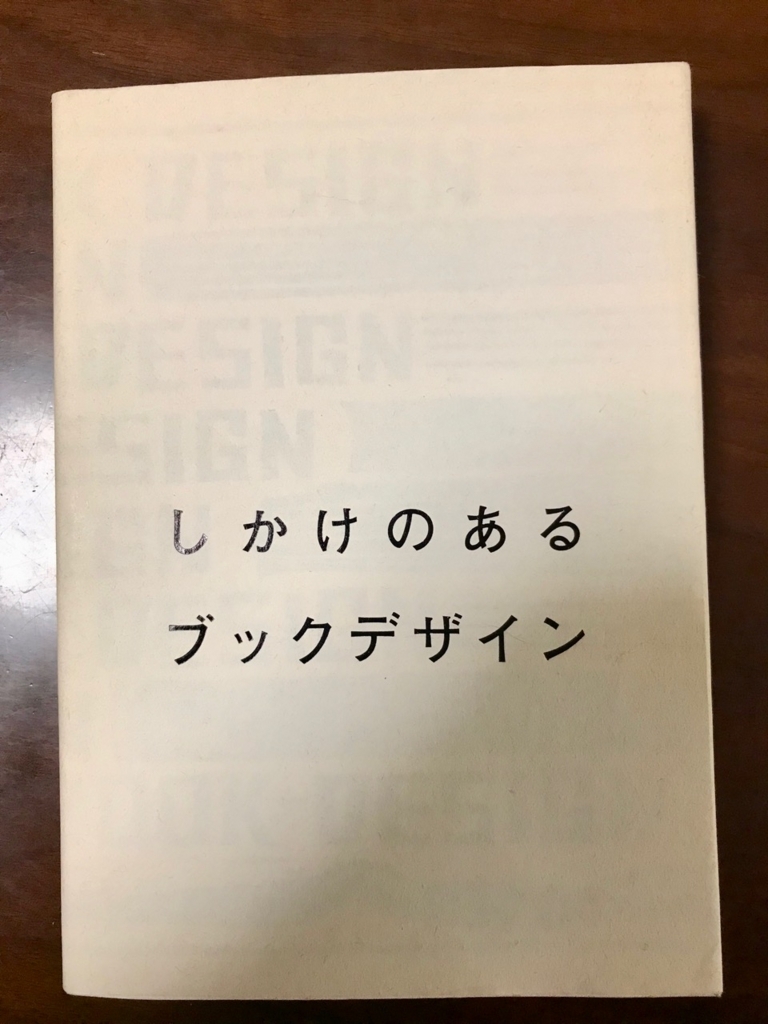 DESIGN
N
DESIGN
SIGN
しかけのある
ブックデザイン